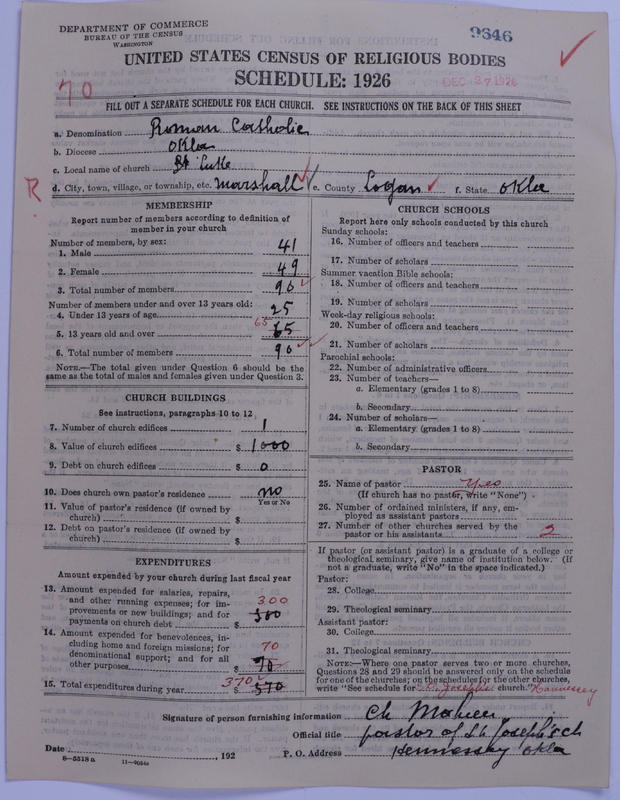 DEPARTMENT OF COMMERCE
BUREAU OF THE CENSUS
WASHINGTON
9646
UNITED STATES CENSUS OF RELIGIOUS BODIES
SCHEDULE: 1926
DEC 27 1926
70
FILL OUT A SEPARATE SCHEDULE FOR EACH CHURCH. SEE INSTRUCTIONS ON THE BACK OF THIS SHEET
a. Denomination Roman Catholic
b. Diocese Okla
c. Local name of church St Luke
R d. City, town, village, or township, etc. Marshall e. County Logan f. State Okla
MEMBERSHIP
Report number of members according to definition of
member in your church
Number of members, by sex:
1. Male 41
2. Female 49
3. Total number of members 90
Number of members under and over 13 years old:
4. Under 13 years of age 25
5. 13 years old and over 65 65
6. Total number of members 90
NOTE.—The total given under Question 6 should be
same as the total of males and females given under Question 3.
CHURCH BUILDINGS
See instructions, paragraphs 10 to 12
7. Number of church edifices 1
8. Value of church edifices $ 1000
9. Debt on church edifices $ 0
10. Does church own pastor's residence no
Yes or No
11. Value of pastor's residence (if owned by
church) $
12. Debt on pastor's residence (if owned by
church) $
EXPENDITURES
Amount expended by your church during last fiscal year
13. Amount expended for salaries, repairs,
and other running expenses; for im- 300
provements or new buildings; and for
payments on church debt $ 300
14. Amount expended for benevolences, in-
cluding home and foreign missions; for 70
denominational support; and for all
other purposes $ 70
370
15. Total expenditures during year $ 370
CHURCH SCHOOLS
Report here only schools conducted by this church
Sunday schools:
16. Number of officers and teachers
17. Number of scholars
Summer vacation Bible schools:
18. Number of officers and teachers
19. Number of scholars
Week-day religious schools:
20. Number of officers and teachers
21. Number of scholars
Parochial schools:
22. Number of administrative officers
23. Number of teachers—
a. Elementary (grades 1 to 8)
b. Secondary
24. Number of scholars—
a. Elementary (grades 1 to 8)
b. Secondary
PASTOR
25. Name of pastor Yes
(If church has no pastor, write "None")
26. Number of ordained ministers, if any, em-
ployed as assistant pastors
27. Number of other churches served by the
pastor or his assistants 2
If pastor (or assistant pastor) is a graduate of a college or
theological seminary, give name of institution below. (If
not a graduate, write "No" in the space indicated.)
Pastor:
28. College
29. Theological seminary
Assistant pastor:
30. College
31. Theological seminary
NOTE:—Where one pastor serves two or more churches,
Questions 28 and 29 should be answered only on the schedule
for one of the churches; on the schedules for the other churches,
write "See schedule for St. Joseph's church." Hennessey
Signature of person furnishing information Ch
Official title pastor of St Joseph's ch
Date , 192 P. O. Address Hennessey Okla
8—5518 a 11—9054a